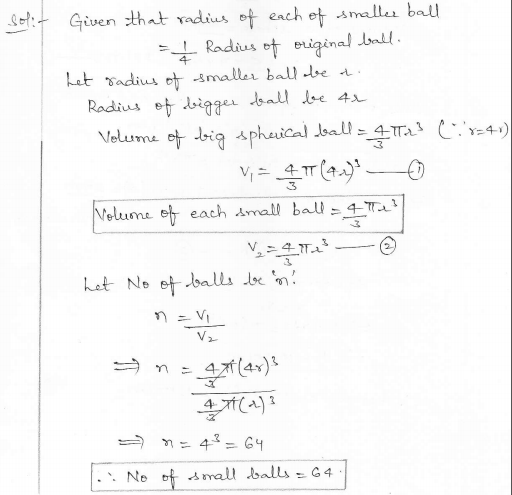 Sol:- Given that radius of each of smaller ball
= 1/4 Radius of original ball.
Let radius of smaller ball be r.
Radius of bigger ball be 4r
Volume of big spherical ball = 4/3 πr³ (∵ r=4r)
V₁ = 4/3 π(4r)³ — ①
Volume of each small ball = 4/3 πr³
V₂ = 4/3 πr³ — ②
Let No of balls be 'n'.
n = V₁/V₂
⟹ n = (4/3 π(4r)³)/(4/3 π(r)³)
⟹ n = 4³ = 64
∴ No of small balls = 64.